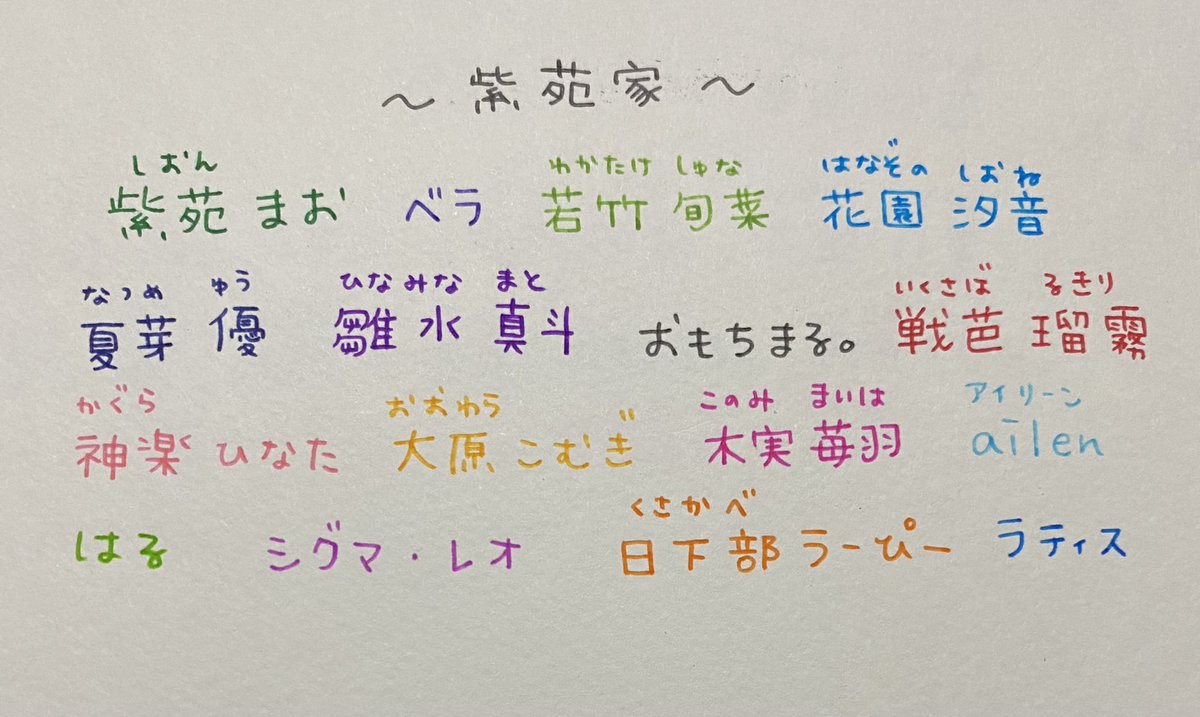 ～ 紫苑家 ～
しおん わかたけ しゅな はなぞの しおね
紫苑 まお ベラ 若竹 旬菜 花園 汐音
なつめ ゆう ひなみな まと いくさば るきり
夏芽 優 雛水 真斗 おもちまる。 戦芭 瑠霧
かぐら おおわら このみ まいは アイリーン
神楽 ひなた 大原 こむぎ 木実 苺羽 ailen
くさかべ
はる シグマ・レオ 日下部 らーぴー ラティス